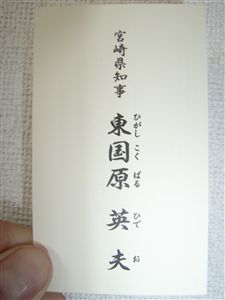 宮崎県知事
東国原 英夫
ひがし こく ばる ひで お